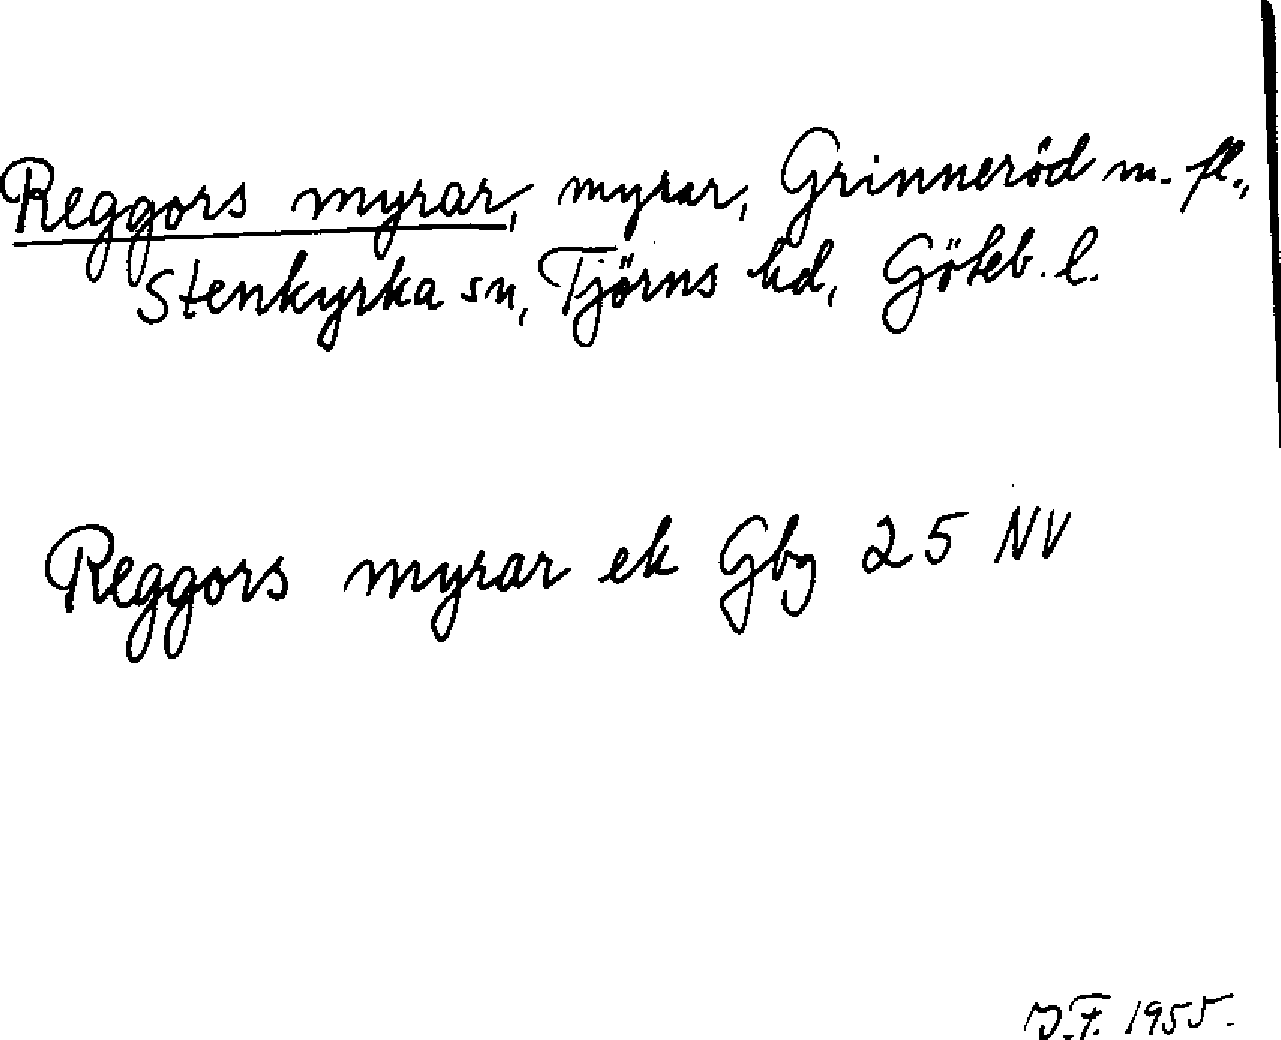 Reggors myrar, myrar, Grinneröd m. fl.,
Stenkyrka sn, Tjörns hd, Göteb. l.
Reggors myrar ek Gbg 25 NV
J.F. 1955.